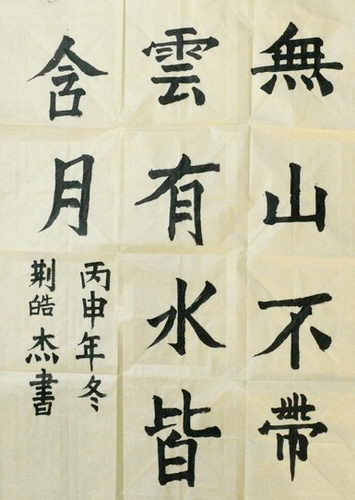 無山不帶
雲有水皆
含月
丙申年冬
荆皓杰書